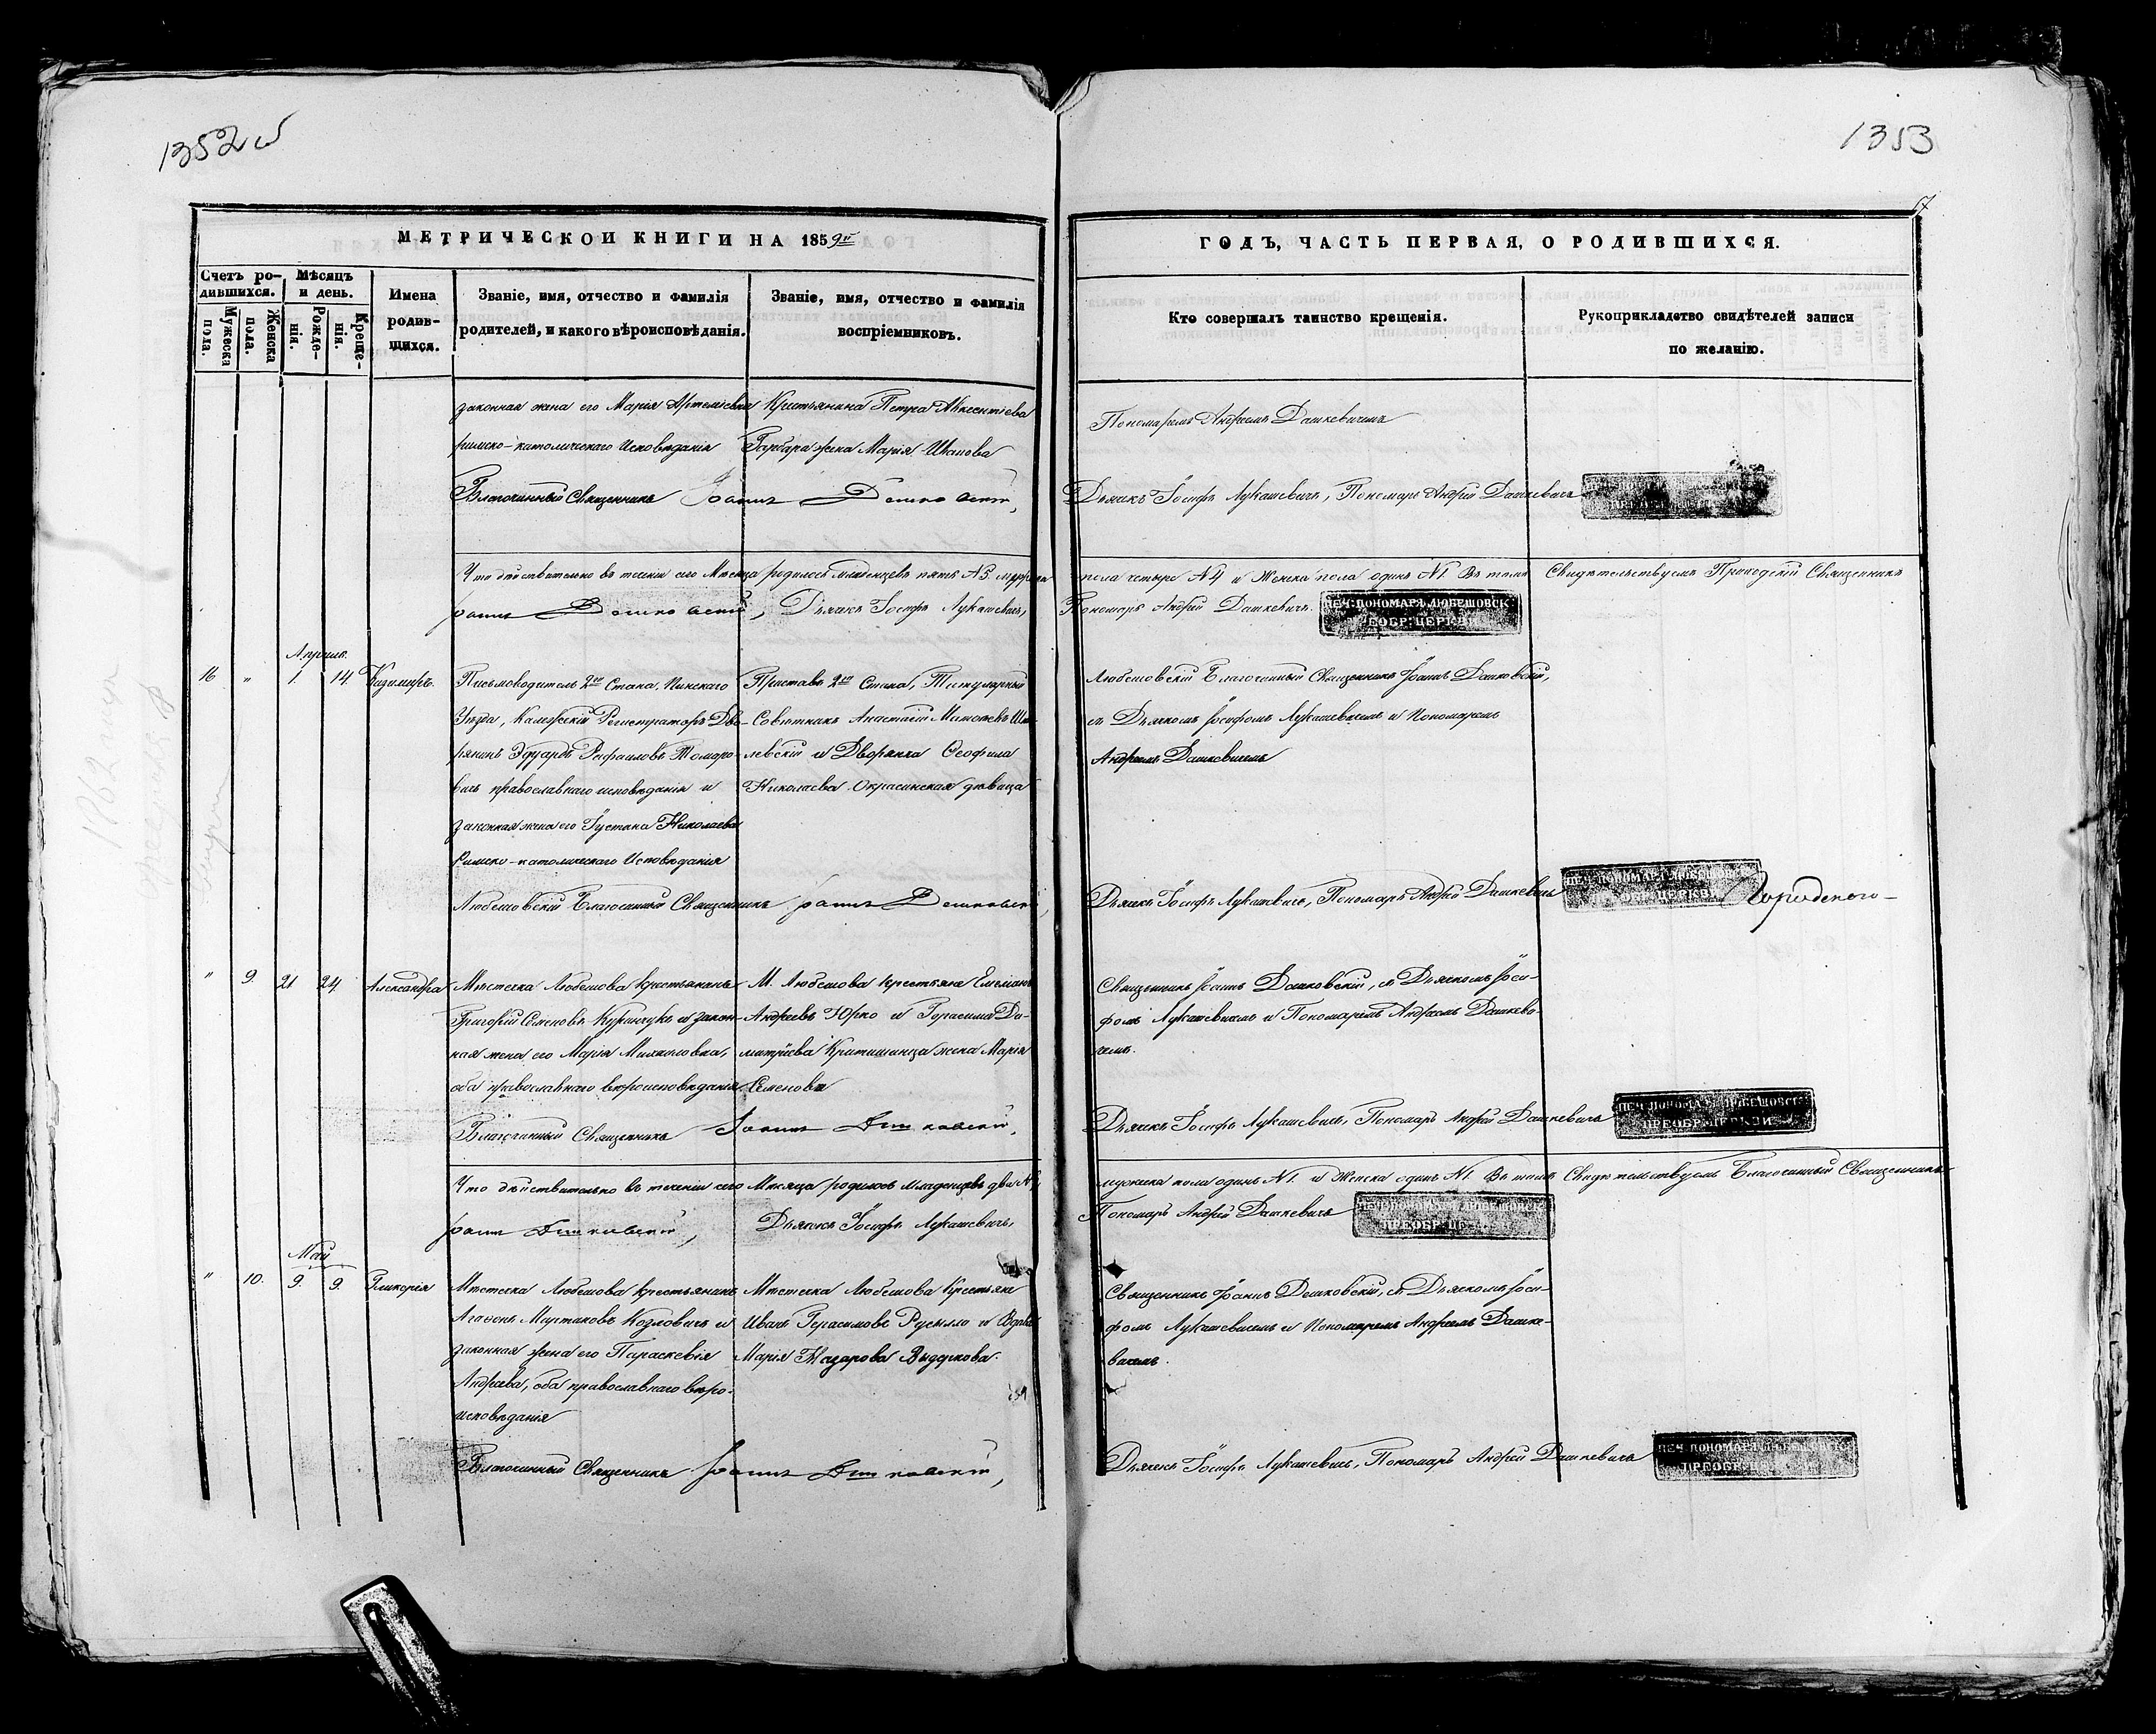 1352 об
1353
17
МЕТРИЧЕСКОЙ КНИГИ НА 1859й
Счетъ ро-
дившихся.
Мѣсяцъ
и день.
Мужеска
пола.
Женска
пола.
Рожде-
нія.
Креще-
нія.
Имена
родив-
шихся.
Званіе, имя, отчество и фамилія
родителей, и какого вѣроисповѣданія.
Званіе, имя, отчество и фамилія
воспріемниковъ.
законная жена его Марія Артеміева
римско-католическаго исповѣданія
Крестьянина Петра Авксентіева
жена Марія Иванова
Благочинный Священникъ Іоаннъ Дашковскій,
Что дѣйствительно въ теченіи сего Мѣсяца родилось младенцевъ пять №5. мужеска
Іоаннъ Дашковскій, Дьячекъ Іосифъ Лукашевичъ,
Апрѣль.
16 " 1. 14. Казимиръ.
Письмоводитель 2го Стана, Пинскаго
Уѣзда, Коллежскій Регистраторъ Дво-
рянинъ Эдуардъ Рафаиловъ Томаро-
вичъ православнаго исповѣданія и
законная жена его Густана Николаева
Римско-католическаго Исповѣданія
Приставъ 2го Стана, Титулярный
Совѣтникъ Анастасій Матвеевъ
левскій и Дворянка Ѳеофила
Николаева Окрасинская дѣвица
Любешовскій Благочинный Священникъ Іоаннъ Дашковскій,
" 9. 21 24 Александра
Мѣстечка Любешова крестьянинъ
Григорій Семеновъ Куранчукъ и закон-
ная жена его Марія Михаловна,
оба православнаго вѣроисповѣданія
М. Любешова крестьяне Емеліанъ
Андреевъ Юрко и Герасима Ди-
митріева жена Марія
Семенова
Благочинный Священникъ Іоаннъ Дашковскій,
Что дѣйствительно въ теченіи сего Мѣсяца родилось младенцевъ два №2,
Іоаннъ Дашковскій, Дьячекъ Іосифъ Лукашевичъ,
Май
" 10. 9. 9. Гликерія
Мѣстечка Любешова крестьянинъ
Агаѳонъ Мартиновъ Козловичъ и
законная жена его Параскевія
Андреева, оба православнаго вѣро-
исповѣданія
Мѣстечка Любешова Крестьяне
Иванъ Герасимовъ Русилло и Вдова
Марія Назарова Видеркова.
Благочинный Священникъ Іоаннъ Дашковскій,
ГОДЪ, ЧАСТЬ ПЕРВАЯ, О РОДИВШИХСЯ.
Кто совершалъ таинство крещенія.
Рукоприкладство свидѣтелей записи
по желанію.
Пономаремъ Андреемъ Дашкевичемъ
Дьячекъ Іосифъ Лукашевичъ, Пономарь Андрей Дашкевичъ
пола четыре №4 и Женска пола одинъ №1. Въ томъ Свидѣтельствуемъ Приходскій Священникъ
Пономарь Андрей Дашкевичъ.
ПЕЧ: ПОНОМАРЯ ЛЮБЕШОВСК:
ПРЕОБР: ЦЕРКВИ
Любешовскій Благочинный Священникъ Іоаннъ Дашковскій,
съ Дьячкомъ Іосифомъ Лукашевичемъ и Пономаремъ
Андреемъ Дашкевичемъ
Дьячекъ Іосифъ Лукашевичъ, Пономарь Андрей Дашкевичъ
ПЕЧ: ПОНОМАРЯ ЛЮБЕШОВСК:
ПРЕОБР: ЦЕРКВИ
Священникъ Іоаннъ Дашковскій, съ Дьячкомъ Іоси-
фомъ Лукашевичемъ и Пономаремъ Андреемъ Дашкеви-
чемъ.
Дьячекъ Іосифъ Лукашевичъ, Пономарь Андрей Дашкевичъ
ПЕЧ: ПОНОМАРЯ ЛЮБЕШОВСК:
ПРЕОБР: ЦЕРКВИ
мужеска пола одинъ №1. и Женска одинъ №1. Въ томъ Свидѣтельствуемъ Благочинный Священникъ
Пономарь Андрей Дашкевичъ
ПЕЧ: ПОНОМАРЯ ЛЮБЕШОВСК:
ПРЕОБР: ЦЕРКВИ
Священникъ Іоаннъ Дашковскій, съ Дьячкомъ Іоси-
фомъ Лукашевичемъ и Пономаремъ Андреемъ Дашке-
вичемъ.
Дьячекъ Іосифъ Лукашевичъ, Пономарь Андрей Дашкевичъ
ПЕЧ: ПОНОМАРЯ ЛЮБЕШОВСК:
ПРЕОБР: ЦЕРКВИ